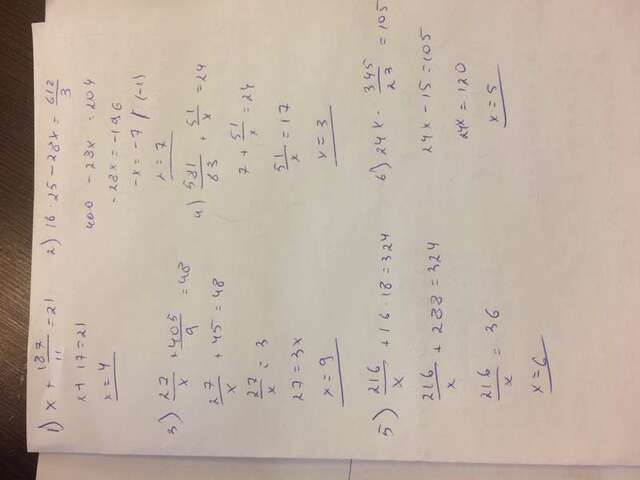 1) x + 187/11 = 21
x + 17 = 21
x = 4
2) 16 · 25 - 28x = 612/3
400 - 28x = 204
-28x = -196
-x = -7 / · (-1)
x = 7
3) 27/x + 405/9 = 48
27/x + 45 = 48
27/x = 3
27 = 3x
x = 9
4) 581/83 + 51/x = 24
7 + 51/x = 24
51/x = 17
x = 3
5) 216/x + 16 · 18 = 324
216/x + 288 = 324
216/x = 36
x = 6
6) 24x - 345/23 = 105
24x - 15 = 105
24x = 120
x = 5